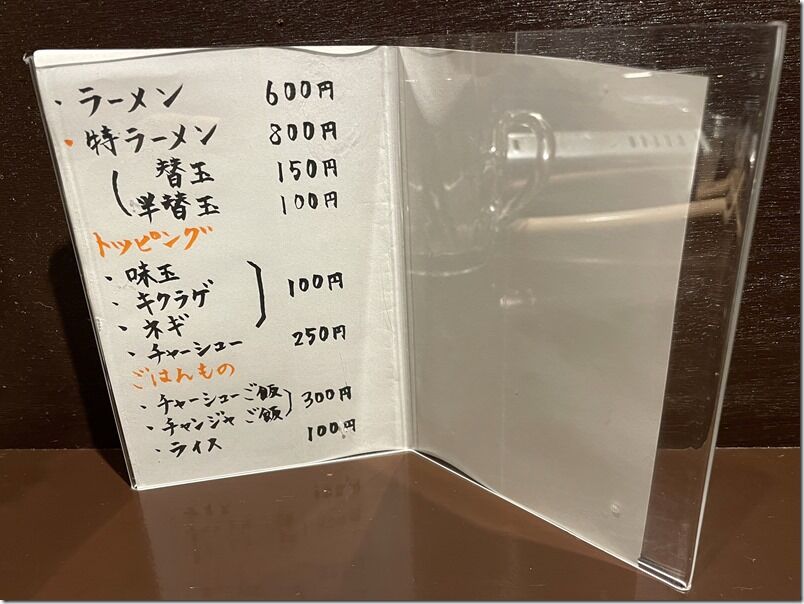 ・ラーメン 600円
・特ラーメン 800円
替玉 150円
半替玉 100円
トッピング
・味玉
・キクラゲ 100円
・ネギ
・チャーシュー 250円
ごはんもの
・チャーシューご飯 300円
・チャンジャご飯
・ライス 100円